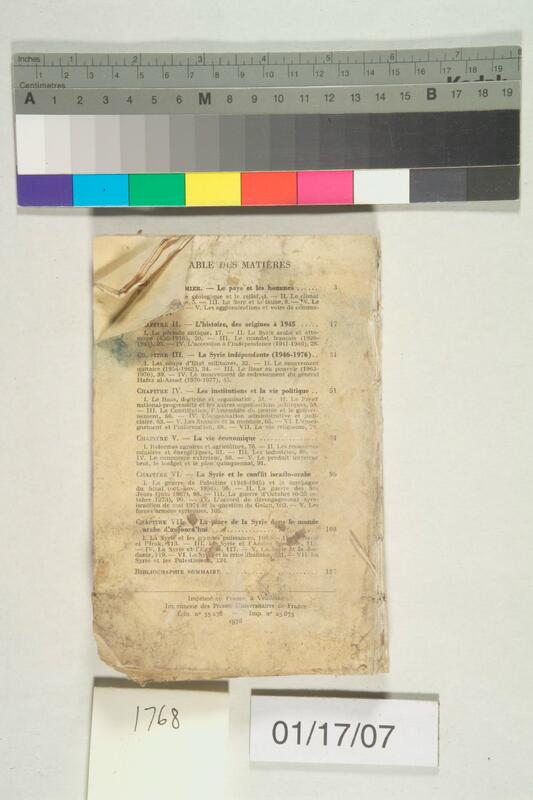 Inches 1 2 3 4 5 6 7 8
1 2 3 4 5 6 7 8 9 10 11 12 13 14 15 16 17 18 19
Centimetres
Kodak
A 1 2 3 4 5 6 M 8 9 10 11 12 13 14 15 B 17 18 19
ABLE DES MATIÈRES
MIER. — Le pays et les hommes ...... 3
géologique et le relief, — II. Le climat
5. — III. La flore et la faune, 8. — IV. Le
— V. Les agglomérations et voies de commu-
CHAPITRE II. — L'histoire, des origines à 1945 ..... 17
I. La période antique, 17. — II. La Syrie arabe et otto-
20. — III. Le mandat français (1920-
— IV. L'accession à l'indépendance (1941-1946), 28.
CHAPITRE III. — La Syrie indépendante (1946-1976) .. 31
I. Les coups d'Etat militaires, 32. — II. Le mouvement
unitaire (1954-1963), 34. — III. Le Baas au pouvoir (1963-
1970), 39. — IV. Le mouvement de redressement du général
Hafez al-Assad (1970-1977), 45.
CHAPITRE IV. — Les institutions et la vie politique .. 51
I. Le Baas, doctrine et organisation, 51. — II. Le Front
national-progressiste et les autres organisations politiques, 58.
— III. La Constitution, l'Assemblée du peuple et le gouver-
nement, 60. — IV. L'organisation administrative et judi-
ciaire, 63. — V. Les finances et la monnaie, 65. — VI. L'ensei-
gnement et l'information, 68. — VII. La vie religieuse,
CHAPITRE V. — La vie économique
I. Réformes agraires et agriculture, 76. — II. Les ressources
minières et énergétiques, 81. — III. Les industries,
IV. Le commerce extérieur, 88. — V. Le produit intérieur
brut, le budget et le plan quinquennal, 91.
CHAPITRE VI. — La Syrie et le conflit israélo-arabe
I. La guerre de Palestine (1948-1945) et la campagne
du Sinaï (oct.-nov. 1956), 96. — II. La guerre des Six
Jours (juin 1967), 98. — III. La guerre d'Octobre
1973), — IV. L'accord de désengagement syro-
israélien de mai 1974 et la question du Golan, 102. — V. Les
forces armées syriennes, 105.
CHAPITRE VII. — La place de la Syrie dans le monde
arabe d'aujourd'hui
I. La Syrie et les grandes puissances,
— III. La Syrie et l'Arabie
— IV. La Syrie et l'Egypte, 117. — V. La Syrie et la Jor-
danie, 119. — VI. La Syrie et la crise libanaise, — VII. La
Syrie et les Palestiniens, 124.
BIBLIOGRAPHIE SOMMAIRE 127
Imprimé en France, à Vendôme
Imprimerie des Presses Universitaires de France
Édit. n° 35 278 — Imp. n° 25 875
1978
1768
01/17/07